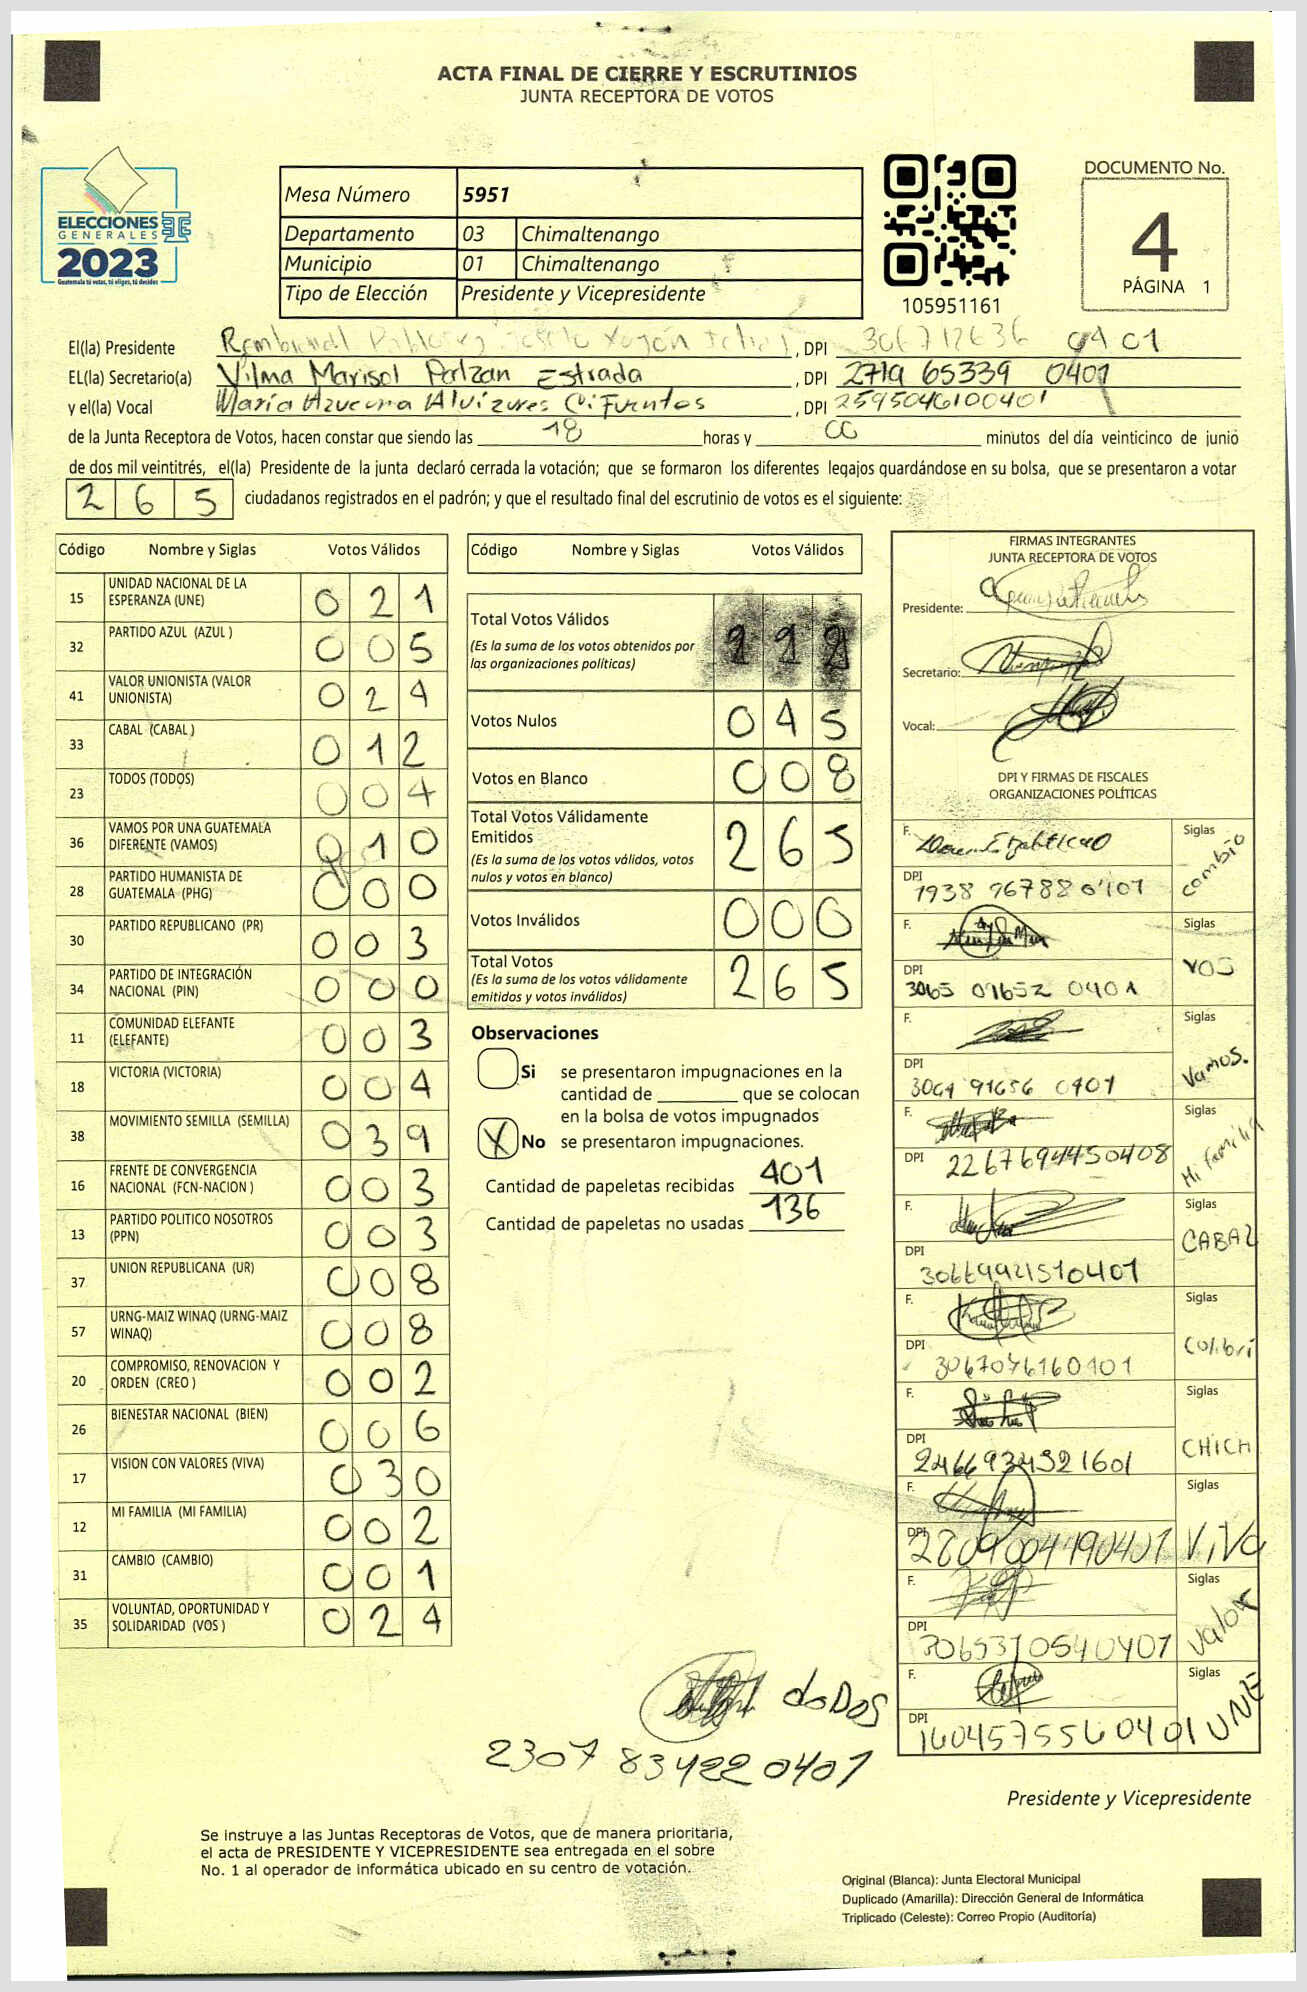 ACTA FINAL DE CIERRE Y ESCRUTINIOS
JUNTA RECEPTORA DE VOTOS
ELECCIONES
GENERALES
2023
Guatemala tú votas, tú eliges, tú decides
Mesa Número 5951
Departamento 03 Chimaltenango
Municipio 01 Chimaltenango
Tipo de Elección Presidente y Vicepresidente
105951161
DOCUMENTO No.
4
PÁGINA 1
El(la) Presidente , DPI 0401
EL(la) Secretario(a) Vilma Marisol Patzan Estrada , DPI 2719 65339 0401
y el(la) Vocal Maria Azucena Alvizures Cifuentes , DPI 2595046100401
de la Junta Receptora de Votos, hacen constar que siendo las 18 horas y 00 minutos del día veinticinco de junio
de dos mil veintitrés, el(la) Presidente de la junta declaró cerrada la votación; que se formaron los diferentes legajos guardándose en su bolsa, que se presentaron a votar
265 ciudadanos registrados en el padrón; y que el resultado final del escrutinio de votos es el siguiente:
Código Nombre y Siglas Votos Válidos
15 UNIDAD NACIONAL DE LA ESPERANZA (UNE) 021
32 PARTIDO AZUL (AZUL ) 005
41 VALOR UNIONISTA (VALOR UNIONISTA) 024
33 CABAL (CABAL ) 012
23 TODOS (TODOS) 004
36 VAMOS POR UNA GUATEMALA DIFERENTE (VAMOS) 010
28 PARTIDO HUMANISTA DE GUATEMALA (PHG) 000
30 PARTIDO REPUBLICANO (PR) 003
34 PARTIDO DE INTEGRACIÓN NACIONAL (PIN) 000
11 COMUNIDAD ELEFANTE (ELEFANTE) 003
18 VICTORIA (VICTORIA) 004
38 MOVIMIENTO SEMILLA (SEMILLA) 039
16 FRENTE DE CONVERGENCIA NACIONAL (FCN-NACION ) 003
13 PARTIDO POLITICO NOSOTROS (PPN) 003
37 UNION REPUBLICANA (UR) 008
57 URNG-MAIZ WINAQ (URNG-MAIZ WINAQ) 008
20 COMPROMISO, RENOVACION Y ORDEN (CREO ) 002
26 BIENESTAR NACIONAL (BIEN) 006
17 VISION CON VALORES (VIVA) 030
12 MI FAMILIA (MI FAMILIA) 002
31 CAMBIO (CAMBIO) 001
35 VOLUNTAD, OPORTUNIDAD Y SOLIDARIDAD (VOS ) 024
Código Nombre y Siglas Votos Válidos
Total Votos Válidos
(Es la suma de los votos obtenidos por las organizaciones políticas)
Votos Nulos 045
Votos en Blanco 008
Total Votos Válidamente Emitidos 265
(Es la suma de los votos válidos, votos nulos y votos en blanco)
Votos Inválidos 000
Total Votos 265
(Es la suma de los votos válidamente emitidos y votos inválidos)
Observaciones
Si se presentaron impugnaciones en la
cantidad de ________ que se colocan
en la bolsa de votos impugnados
X No se presentaron impugnaciones.
Cantidad de papeletas recibidas 401
Cantidad de papeletas no usadas 136
FIRMAS INTEGRANTES
JUNTA RECEPTORA DE VOTOS
Presidente:
Secretario:
Vocal:
DPI Y FIRMAS DE FISCALES
ORGANIZACIONES POLÍTICAS
F. Siglas cambio
DPI 1938 76788 0101
F. Siglas VOS
DPI 3065 01652 0401
F. Siglas Vamos.
DPI 3064 91656 0401
F. Siglas Mi familia
DPI 2267694450408
F. Siglas CABAL
DPI 30669941510401
F. Siglas Colibri
DPI 3067076160101
F. Siglas CHICH
DPI 2466934321601
F. Siglas ViVa
DPI 2809004190401
F. Siglas Valor
DPI 3065310540401
F. Siglas UNE
DPI 1604575560401
doDOS
2307 834220401
Presidente y Vicepresidente
Se instruye a las Juntas Receptoras de Votos, que de manera prioritaria,
el acta de PRESIDENTE Y VICEPRESIDENTE sea entregada en el sobre
No. 1 al operador de informática ubicado en su centro de votación.
Original (Blanca): Junta Electoral Municipal
Duplicado (Amarilla): Dirección General de Informática
Triplicado (Celeste): Correo Propio (Auditoría)